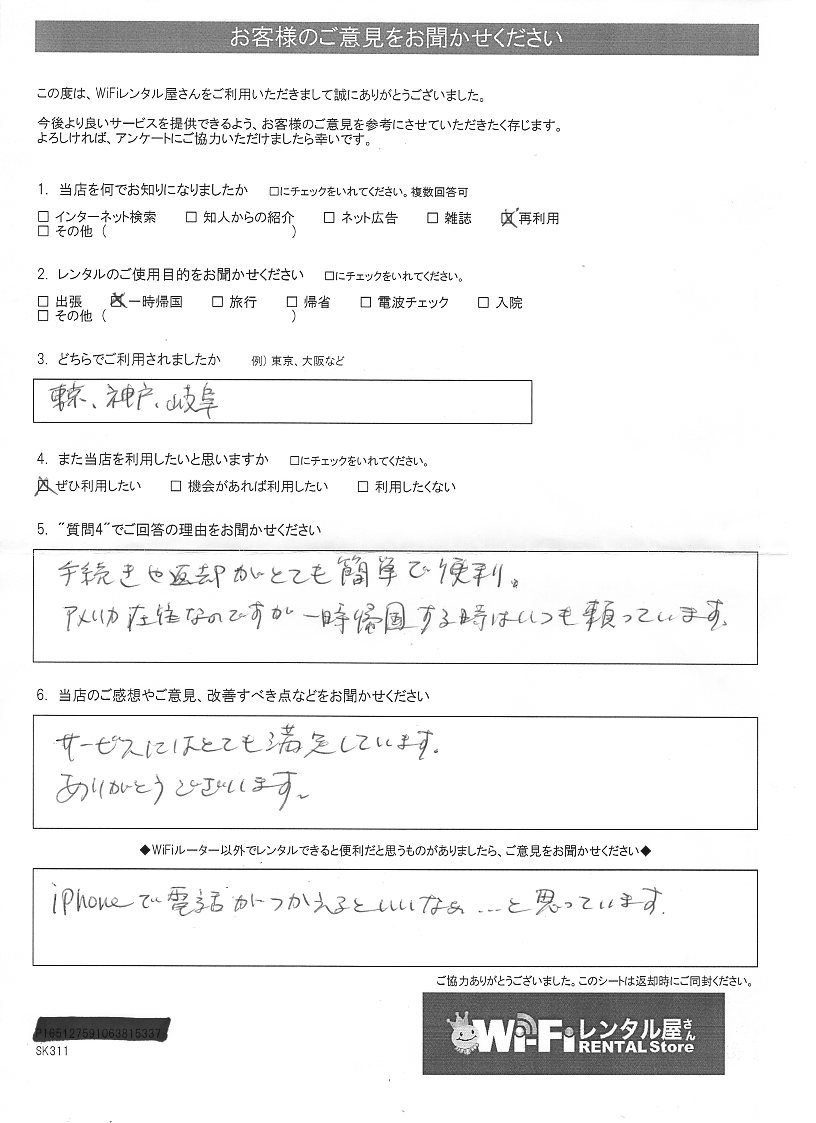 お客様のご意見をお聞かせください
この度は、WiFiレンタル屋さんをご利用いただきまして誠にありがとうございました。
今後より良いサービスを提供できるよう、お客様のご意見を参考にさせていただきたく存じます。
よろしければ、アンケートにご協力いただけましたら幸いです。
1. 当店を何でお知りになりましたか □にチェックをいれてください。複数回答可
□ インターネット検索 □ 知人からの紹介 □ ネット広告 □ 雑誌 ☒ 再利用
□ その他 ( )
2. レンタルのご使用目的をお聞かせください □にチェックをいれてください。
□ 出張 ☒ 一時帰国 □ 旅行 □ 帰省 □ 電波チェック □ 入院
□ その他 ( )
3. どちらでご利用されましたか 例) 東京、大阪など
東京、神戸、岐阜
4. また当店を利用したいと思いますか □にチェックをいれてください。
☒ ぜひ利用したい □ 機会があれば利用したい □ 利用したくない
5. "質問4"でご回答の理由をお聞かせください
手続きや返却がとても簡単で便利。
アメリカ在住なのですが一時帰国する時はいつも頼っています。
6. 当店のご感想やご意見、改善すべき点などをお聞かせください
サービスにはとても満足しています。
ありがとうございます。
◆WiFiルーター以外でレンタルできると便利だと思うものがありましたら、ご意見をお聞かせください◆
iPhoneで電話がつかえるといいなぁ…と思っています。
ご協力ありがとうございました。このシートは返却時にご同封ください。
SK311
Wi-Fiレンタル屋さん
RENTAL Store